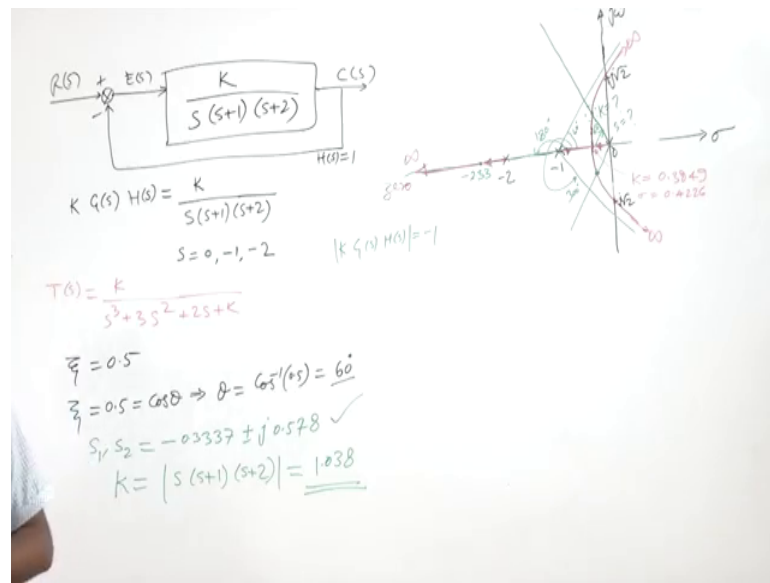 R(S) + E(S) K C(S)
S(S+1)(S+2)
−
H(S)=1
K G(S) H(S) = K / S(S+1)(S+2)
S = 0, -1, -2
|K G(S) H(S)| = -1
T(S) = K / S³+3S²+2S+K
ξ = 0.5
ξ = 0.5 = Cosθ ⇒ θ = Cos⁻¹(0.5) = 60°
S₁, S₂ = -0.3337 ± j0.578 ✓
K = |S(S+1)(S+2)| = 1.038
jω
∞
j√2
K=?
S=?
180°
60°
σ
∞
zero
-2.33
-2
-1
0
K = 0.3849
σ = 0.4226
j√2
∞